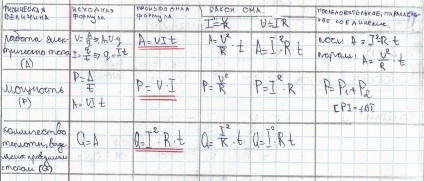 физическая величина
исходная формула
производная формула
закон Ома
I = V/R V = IR
последовательное, параллельное соединение
работа электрического тока (A)
V = A/q ⇒ A = V·q
I = q/t ⇒ q = It
A = VIt
A = V²/R · t
A = I²·R·t
посл A = I²R·t
парал A = V²/R · t
Мощность (P)
P = A/t
A = VIt
P = V·I
P = V²/R
P = I²·R
P = P₁ + P₂
[P] = 1Вт
Количество теплоты
током (Q)
Q = A
Q = I²·R·t
Q = I²/R · t
Q = I²·R·t